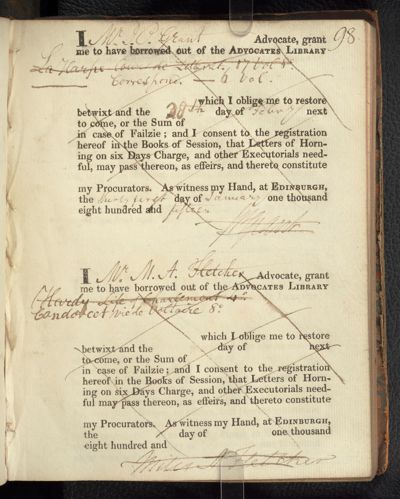 98
I Mr. J. P. Grant Advocate, grant
me to have borrowed out of the ADVOCATES LIBRARY
La Harpe Cours de Literat. 17 Vol 8º
Correspond. — 6 Vol.
which I oblige me to restore
betwixt and the 28th day of Feby next
to come, or the Sum of
in case of Failzie; and I consent to the registration
hereof in the Books of Session, that Letters of Horn-
ing on six Days Charge, and other Executorials need-
ful, may pass thereon, as effeirs, and thereto constitute
my Procurators. As witness my Hand, at EDINBURGH,
the thirty first day of January one thousand
eight hundred and fifteen
I Mr. M. A. Fletcher Advocate, grant
me to have borrowed out of the ADVOCATES LIBRARY
Condorcet vie de Voltaire 8º
which I oblige me to restore
betwixt and the day of next
to come, or the Sum of
in case of Failzie; and I consent to the registration
hereof in the Books of Session, that Letters of Horn-
ing on six Days Charge, and other Executorials need-
ful may pass thereon, as effeirs, and thereto constitute
my Procurators. As witness my Hand, at EDINBURGH,
the day of one thousand
eight hundred and
Miles A Fletcher